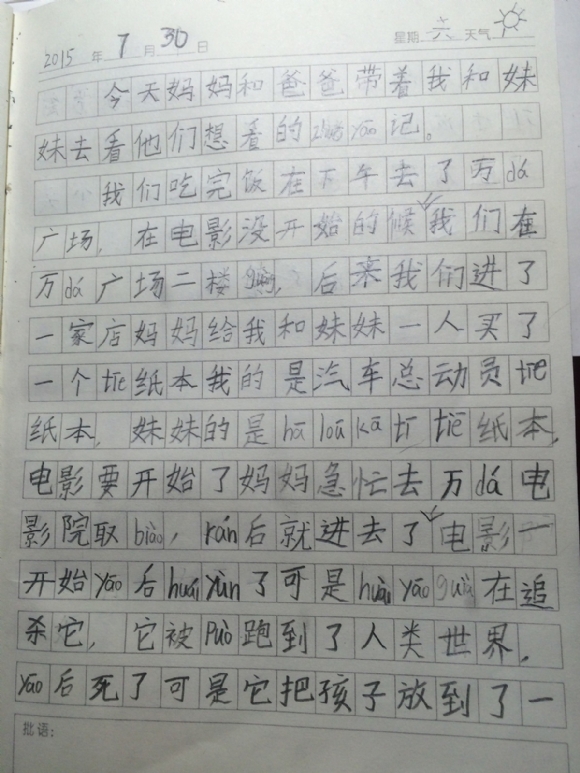 2015 年 7 月 30 日 星期 六 天气
今天妈妈和爸爸带着我和妹
妹去看他们想看的 zhuō yāo 记。
我们吃完饭在下午去了万 dá
广场，在电影没开始的候我们在
万 dá 广场二楼 guàng，后来我们进了
一家店妈妈给我和妹妹一人买了
一个 tiē 纸本我的是汽车总动员 tiē
纸本，妹妹的是 hā loū kǎ tī tiē 纸本，
电影要开始了妈妈急忙去万 dá 电
影院取 biào，rán 后就进去了电影一
开始 yāo 后 huái yùn 了可是 huài yāo guài 在追
杀它，它被 Pùo 跑到了人类世界，
yāo 后死了可是它把孩子放到了一
批语：